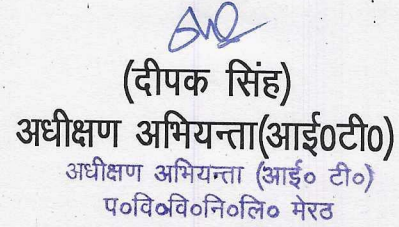 (दीपक सिंह)
अधीक्षण अभियन्ता(आई0टी0)
अधीक्षण अभियन्ता (आई० टी०)
प०वि०वि०नि०लि० मेरठ